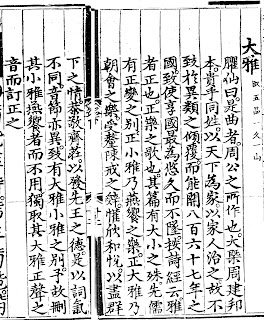 大雅
臞仙曰是曲者周公之所作也大槩周建邦
本貴乎同姓以天下為家以家人治之故不
致於異類之傾覆而能開八百六十七年之
國致使享國最為悠久而不墜按詩經云雅
者正也正樂之歌也其篇有大小之殊先儒
有正變之别正小雅乃燕饗之樂正大雅乃
朝會之樂受釐陳戒之辭懽欣和悅以盡群
下之情恭敬齊莊以發先王之德是以詞氣
不同音節亦異故有大雅小雅之别予故刪
其小雅燕饗者而不用獨取其大雅正聲之
音而訂正之